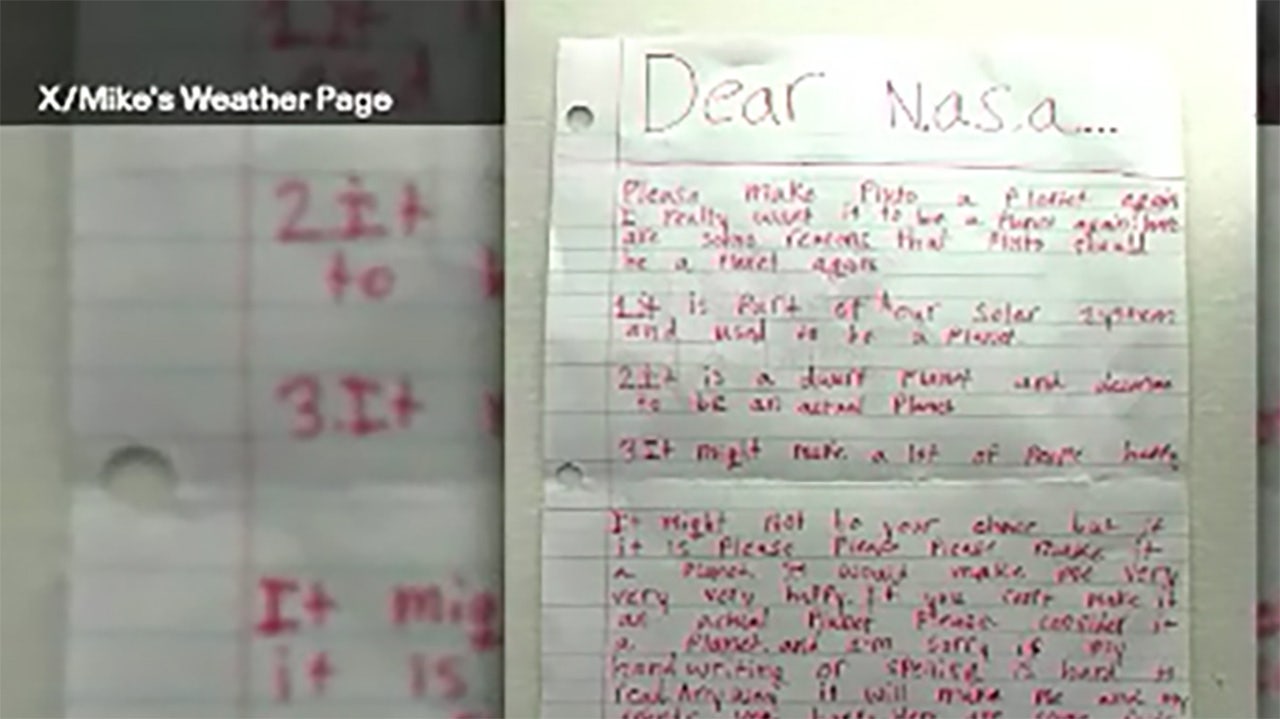 X/Mike's Weather Page
2 It
to
3. It
It mig
it is
Dear N.a.s.a...
Please make Pluto a Planet again
I really want it to be a Planet again
are some reasons that Pluto should
be a Planet again
1 it is Part of our solar system
and used to be a Planet
2 It is a dwarf Planet and
to be an actual Planet
3 It might make a lot of People happy
It might not be your choice but if
it is Please Please Please make it
a Planet. It would make me very
very very happy. If you can't make it
an actual Planet Please consider it
a Planet. and I'm sorry if my
handwriting or spelling is hard to
read Anyway it will make me and my